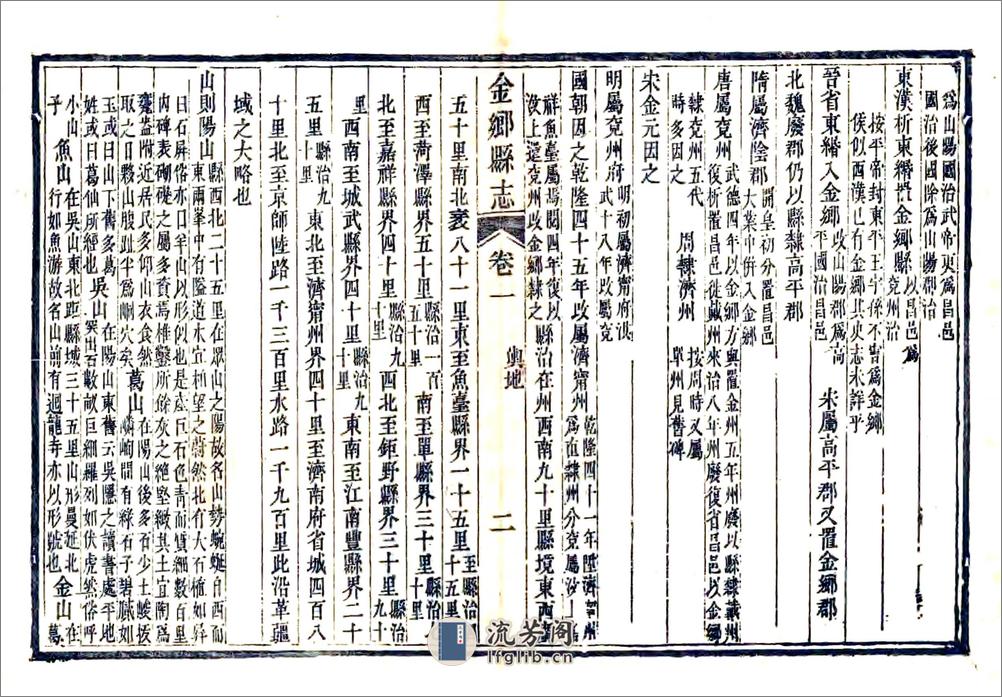 爲山陽國治武帝更爲昌邑
國治後國除爲山陽郡治
東漢析東緡置金鄉縣以昌邑爲兗州治
按平帝封東平王宇孫不害爲金鄉
侯似西漢已有金鄉其史志未詳乎
晉省東緡入金鄉改山陽郡爲高平國治昌邑
宋屬高平郡又置金鄉郡
北魏廢郡仍以縣隸高平郡
隋屬濟陰郡開皇初分置昌邑大業中併入金鄉
唐屬兗州武德四年以金鄉方與置金州五年州廢以縣隸戴州
復析置昌邑徙戴州來治八年州廢復省昌邑以金鄉
隸兗州五代時多因之
周隸濟州按周時又屬單州見舊碑
宋金元因之
明屬兗州府明初屬濟寧府洪武十八年改屬兗
國朝因之乾隆四十五年改屬濟甯州乾隆四十一年陞濟甯州爲直隸州分兗屬汶上嘉
祥魚臺屬焉閱四年汶上還兗州改金鄉隸之
縣治在州西南九十里縣境東西
金鄉縣志
卷一
輿地
二
五十里南北袤八十一里東至魚臺縣界一十五里至縣治一十五里
西至菏澤縣界五十里縣治一百五十里
南至單縣界三十里縣治八十里
北至嘉祥縣界四十里縣治九十里
西北至鉅野縣界三十里縣治九十里
西南至城武縣界四十里縣治九十里
東南至江南豐縣界二十五里縣治九十里
東北至濟甯州界四十里至濟南府省城四百八十里北至京師陸路一千三百里水路一千九百里此沿革疆
域之大略也
山則陽山縣西北二十五里在眾山之陽故名山勢蜿蜒自西而
東兩峯中有隘道水宜和望之蔚然北有大石植如屛
曰石屛俗亦曰羊山以形似也是處巨石色青而質細數百里
內碑表砌礎之屬多資焉椎鑿所餘灰之絕堅緻其土宜陶爲
甕盎附近居民多仰山衣食然取之日夥山腹趾半爲峒穴矣
葛山在陽山後多石少土峻拔嶙峋間有綠石子碧膩如
玉或曰山下舊多葛姓或曰葛仙所經也
吳山在陽山東舊云吳隱之讀書處平地突出石數畝巨細羅列如伏虎然俗呼
小山
魚山在吳山東北距縣城三十五里山形蔓延北行如魚游故名山前有迴龍寺亦以形號也
金山在葛